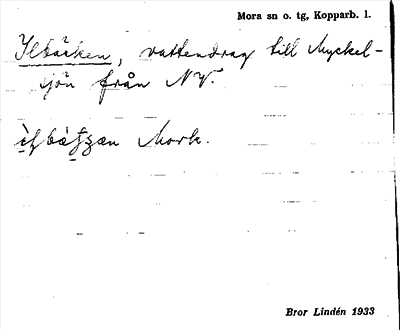 Mora sn o. tg, Kopparb. l.
Ilbäcken, vattendrag till Myckel-
sjön från NV.
Mork.
Bror Lindén 1933